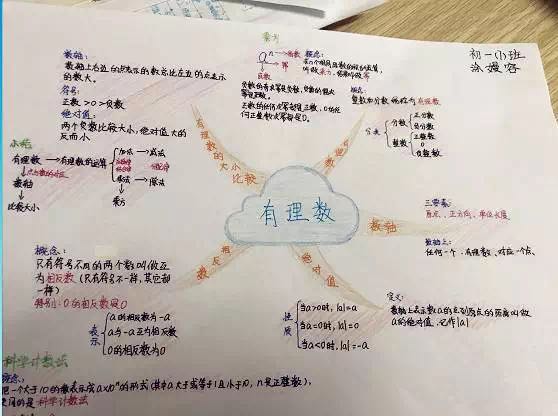 初一(1)班
涂嫚容
乘方
aⁿ→指数
幂
底数
概念:
求n个相同因数的积的运算,
叫做乘方,结果叫做幂
负数的奇次幂是负数,负数的偶次
幂是正数。
正数的任何次幂都是正数,0的任
何正整数次幂都是0。
数轴:
数轴上右边的点表示的数总比左边的点表示
的数大。
符号:
正数>0>负数
绝对值:
两个负数比较大小,绝对值大的
反而小
有理数的大小
比较
概念:
整数和分数统称为有理数
分类
分数
正分数
负分数
整数
正整数
0
负整数
小结
有理数→有理数的运算
加法→减法
乘法→除法
乘方
数轴
比较大小
有理数
数轴
三要素:
原点、正方向、单位长度
数轴上:
任何一个有理数、对应一个点、
相反数
概念:
只有符号不同的两个数叫做互
为相反数(只有符号不一样,其它都
一样)
特别:0的相反数是0
表示
a的相反数为-a
a与-a互为相反数
0的相反数为0
绝对值
性质
当a>0时,|a|=a
当a=0时,|a|=0
当a<0时,|a|=-a
定义:
数轴上表示数a的点到原点的距离叫做
a的绝对值,记作|a|
科学计数法
概念:
把一个大于10的数表示成a×10ⁿ的形式(其中a大于或等于1且小于10,n是正整数),
使用的是科学计数法